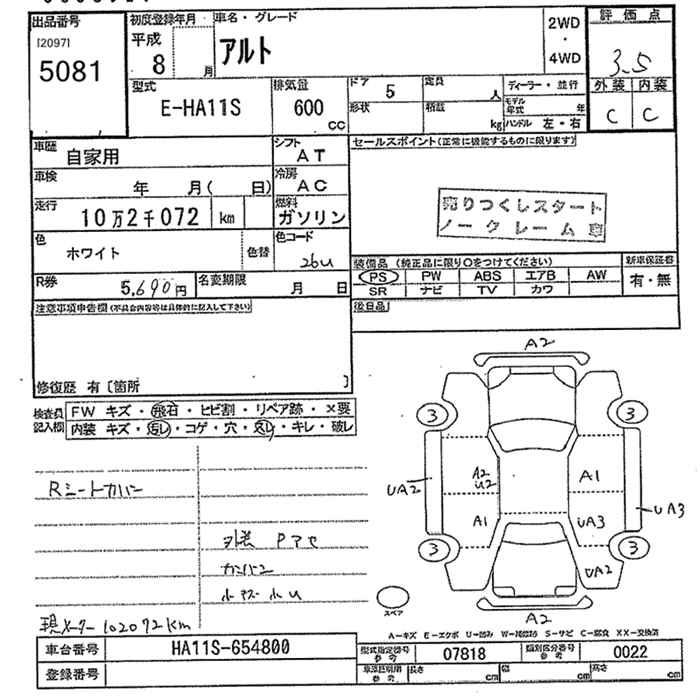 出品番号
[2097]
5081
初度登録年月
平成
8 月
車名・グレード
アルト
2WD
・
4WD
評価点
3.5
外装 内装
C C
型式
E-HA11S
排気量
600
CC
ドア 5
形状
定員 人
積載 kg
ディーラー・並行
モデル年式 年
ハンドル 左・右
車歴
自家用
シフト
AT
車検
年 月( 日)
冷房
AC
走行
10万2千072 km
燃料
ガソリン
色
ホワイト
色替
色コード
26U
R券
5,690円
名変期限
月 日
セールスポイント(正常に機能するものに限ります)
売りつくしスタート
ノークレーム車
装備品 (純正品に限り○をつけてください)
PS PW ABS エアB AW
SR ナビ TV カワ
新車保証書
有・無
後日品
注意事項申告欄(不具合内容等は具体的に記入して下さい)
修復歴 有〔箇所 〕
検査員
記入欄
FW キズ・飛石・ヒビ割・リペア跡・×要
内装 キズ・汚レ・コゲ・穴・スレ・キレ・破レ
Rシートカバー
外装 Pアセ
カンバン
小キズ 小U
現メーター102072km
A2
3 3
UA2
A2
U2
A1
A1
UA3
UA3
3 3
UA2
A2
スペア
A-キズ E-エクボ U-凹み W-補修跡 S-サビ C-腐食 XX-交換済
車台番号
HA11S-654800
登録番号
型式指定番号
参考
07818
類別区分番号
参考
0022
車添区別用
参考
長さ cm
幅 cm
高さ cm